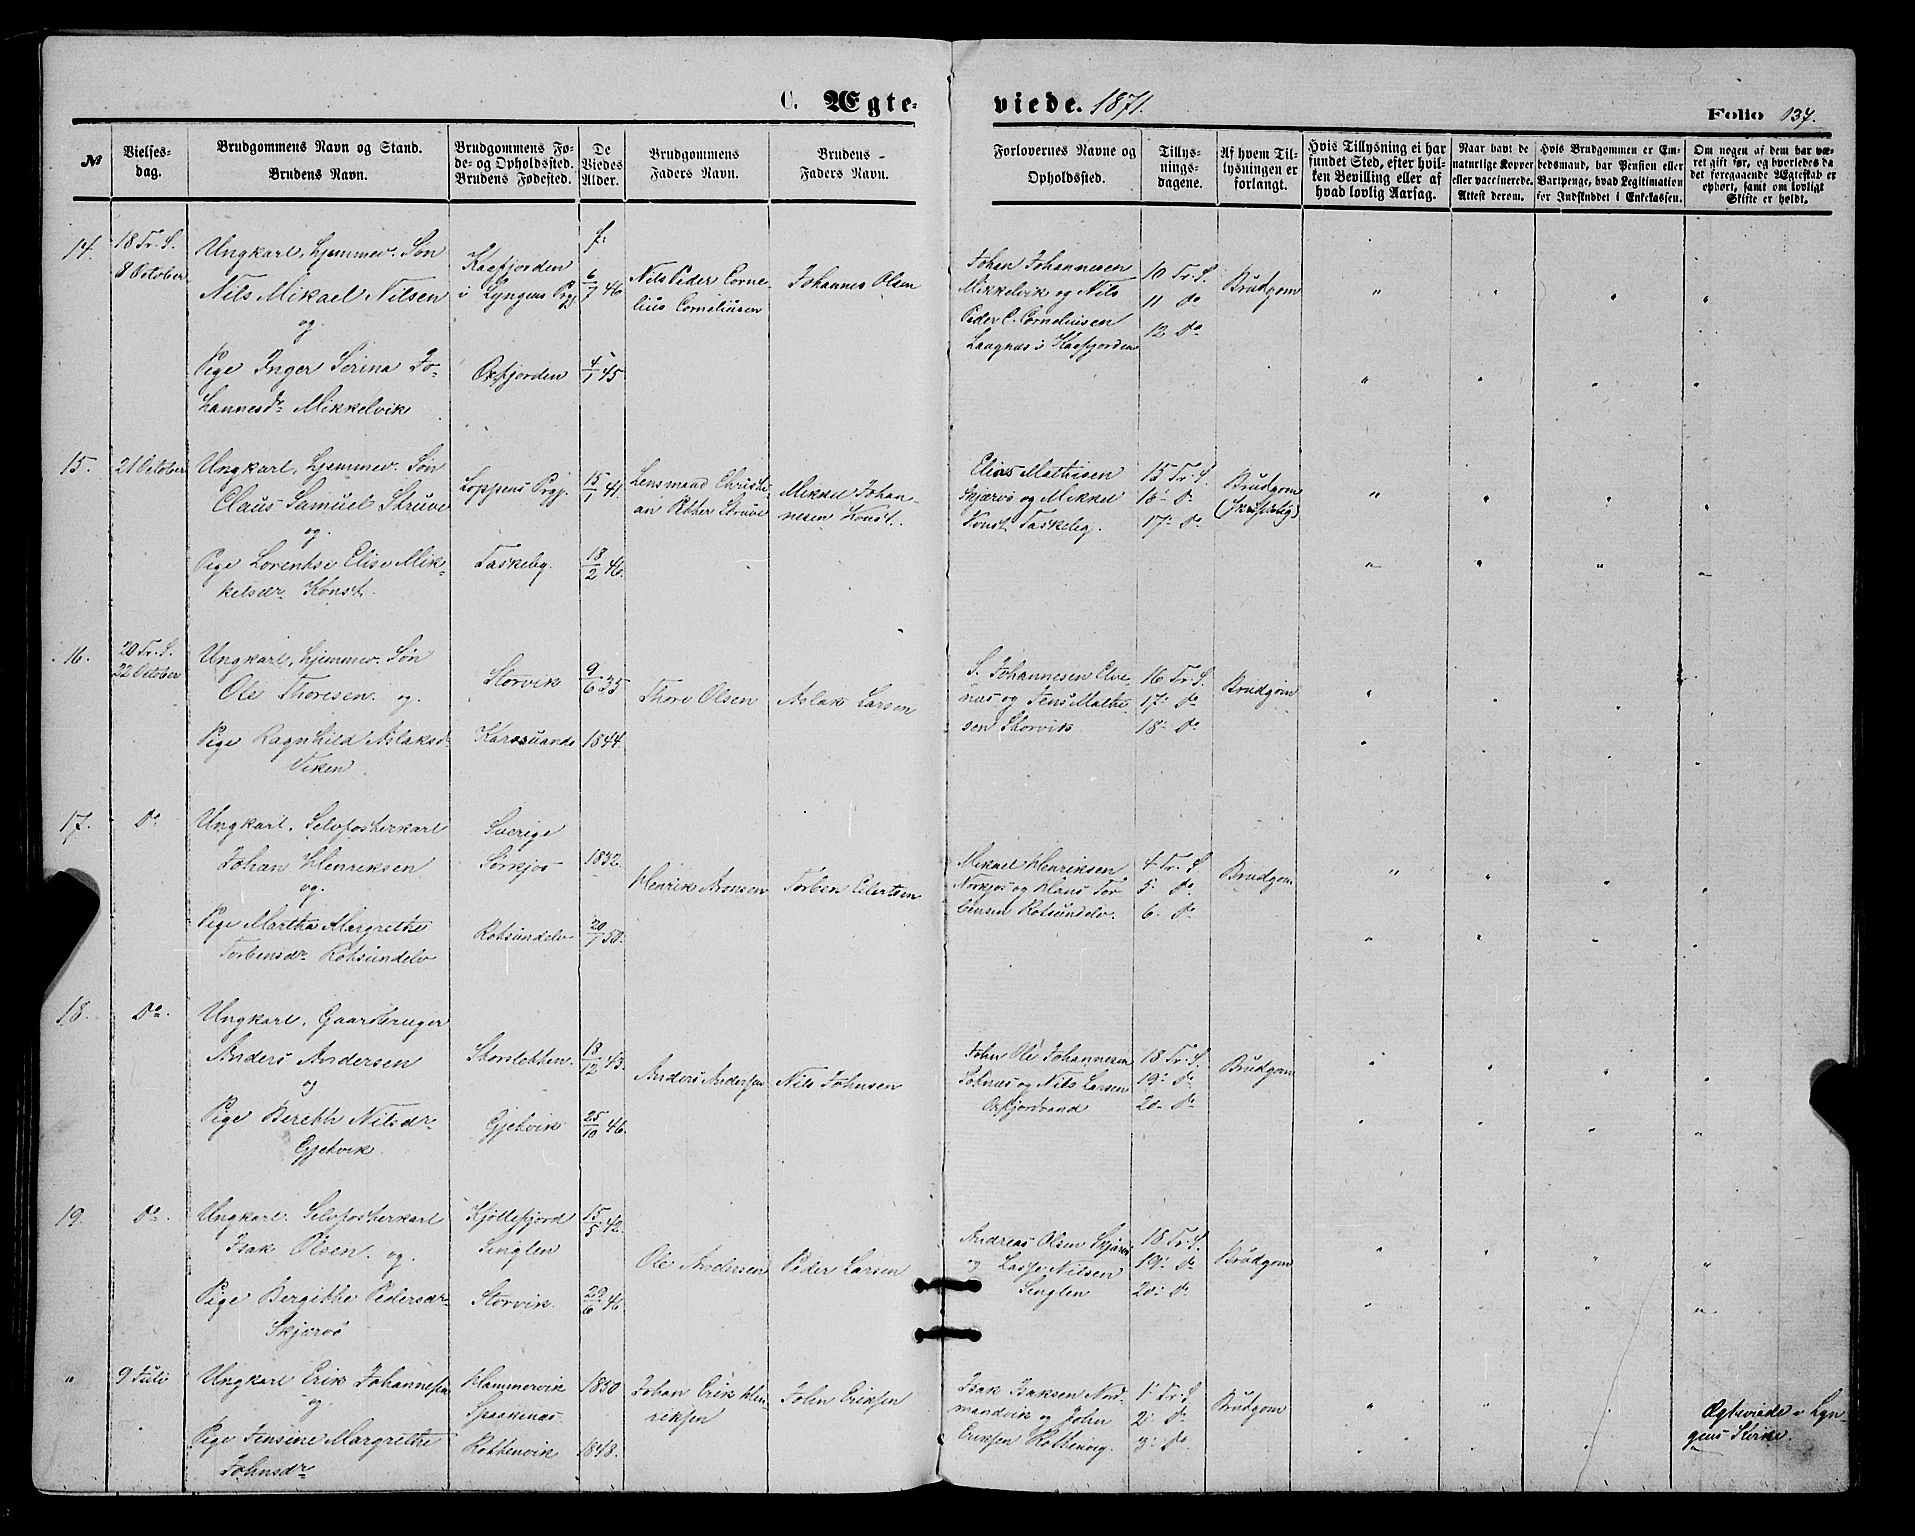 C. Ægte-
viede. 1871.
Folio 137.
№
Vielses-
dag.
Brudgommens Navn og Stand.
Brudens Navn.
Brudgommens Fø-
de- og Opholdssted.
Brudens Fødested.
De
Viedes
Alder.
Brudgommens
Faders Navn.
Brudens
Faders Navn.
Forlovernes Navne og
Opholdssted.
Tillys-
nings-
dagene.
Af hvem Til-
lysningen er
forlangt.
Hvis Tillysning ei har
fundet Sted, efter hvil-
ken Bevilling eller af
hvad lovlig Aarsag.
Naar havt de
naturlige Kopper
eller vaccinerede.
Attest derom.
Hvis Brudgommen er Em-
bedsmand, har Pension eller
Vartpenge, hvad Legitimation
for Indskuddet i Enkekassen.
Om nogen af dem har væ-
ret gift før, og hvorledes da
det foregaaende Ægteskab er
ophørt, samt om lovligt
Skifte er holdt.
14.
18 Tr. S.
8 October
Ungkarl, hjemmev. Søn
Nils Mikael Nilsen
og
Pige Inger Serina Jo-
hannesdr Mikkelvik
Kaafjorden
i Lyngens Prgj
Oxfjorden
f:
6/7 46
4/1 45
Nils Peder Corne-
lius Corneliusen
Johannes Olsen
Johan Johannesen
Mikkelvik og Nils
Peder C. Corneliusen
Langnes i Kaafjorden
10 Tr. S.
11 do
12 do
Brudgom
15.
21 October
Ungkarl, hjemmev. Søn
Claus Samuel Struve
og
Pige Lorentse Elise Mik-
kelsdr Konst.
Loppens Prgj.
Taskeby.
15/1 41.
18/2 46.
Lensmand Christi-
an Pether Struve
Mikkel Johan-
nesen Konst.
Elias Mathisen
Skjærvö og Mikkel
Konst Taskeby.
15 Tr. S.
16 do
17 do
Brudgom
(skriftlig)
16.
20 Tr. S.
22 October
Ungkarl, hjemmev. Søn
Ole Thoresen og
Pige Ragnhild Aslaksdr
Viken
Storvik
Karesuando
9/6 35
1844.
Thore Olsen
Aslak Larsen
S. Johannesen Elve-
nes og Jens Mathi-
sen Storvik
16 Tr. S.
17 do
18 do
Brudgom
17.
do
Ungkarl, Selvposterkarl
Johan Henriksen
og
Pige Martha Margrethe
Torbensdr Rotsundelv
Sverige
Sørkjos
Rotsundelv
1832.
20/1 50.
Henrik Aronsen
Torben Eilertsen
Mikael Henriksen
Norkjos og Klaus Tor
bensen Rotsundelv.
4 Tr. S.
5 do
6 do
Brudgom
18.
do.
Ungkarl, Gaardbruger
Anders Andersen
og
Pige Berethe Nilsdr
Gjetvik.
Storsletten.
Gjetvik
18/12 43.
25/10 46.
Anders Andersen
Nils Johnsen
John Ole Johannesen
Solnæs og Nils Larsen
Oxfjordvand
18 Tr. S.
19 do
20 do
Brudgom
19.
do.
Ungkarl. Selvposterkarl
Isak Olsen og
Pige Bergithe Pedersdr
Skjærvö
Kjøllefjord
Singlen
Storvik.
15/5 42.
29/6 46.
Ole Andersen
Peder Larsen
Andreas Olsen Skjærvö
og Lasse Nilsen
Singlen
18 Tr. S.
19 do
20 do
Brudgom
"
9 Juli
Ungkarl Erik Johannesen
og
Pige Jensine Margrethe
Johnsdr
Hammervik
Spaakenæs.
Rottenvik
1850
1848.
Johan Erik Hen-
riksen
John Eriksen
Isak Isaksen Nord-
mandvik og John
Eriksen Rottenvig.
1 Tr. S
2 do
3 do
Brudgom
Ægteviede i Lyn-
gens Kirke.